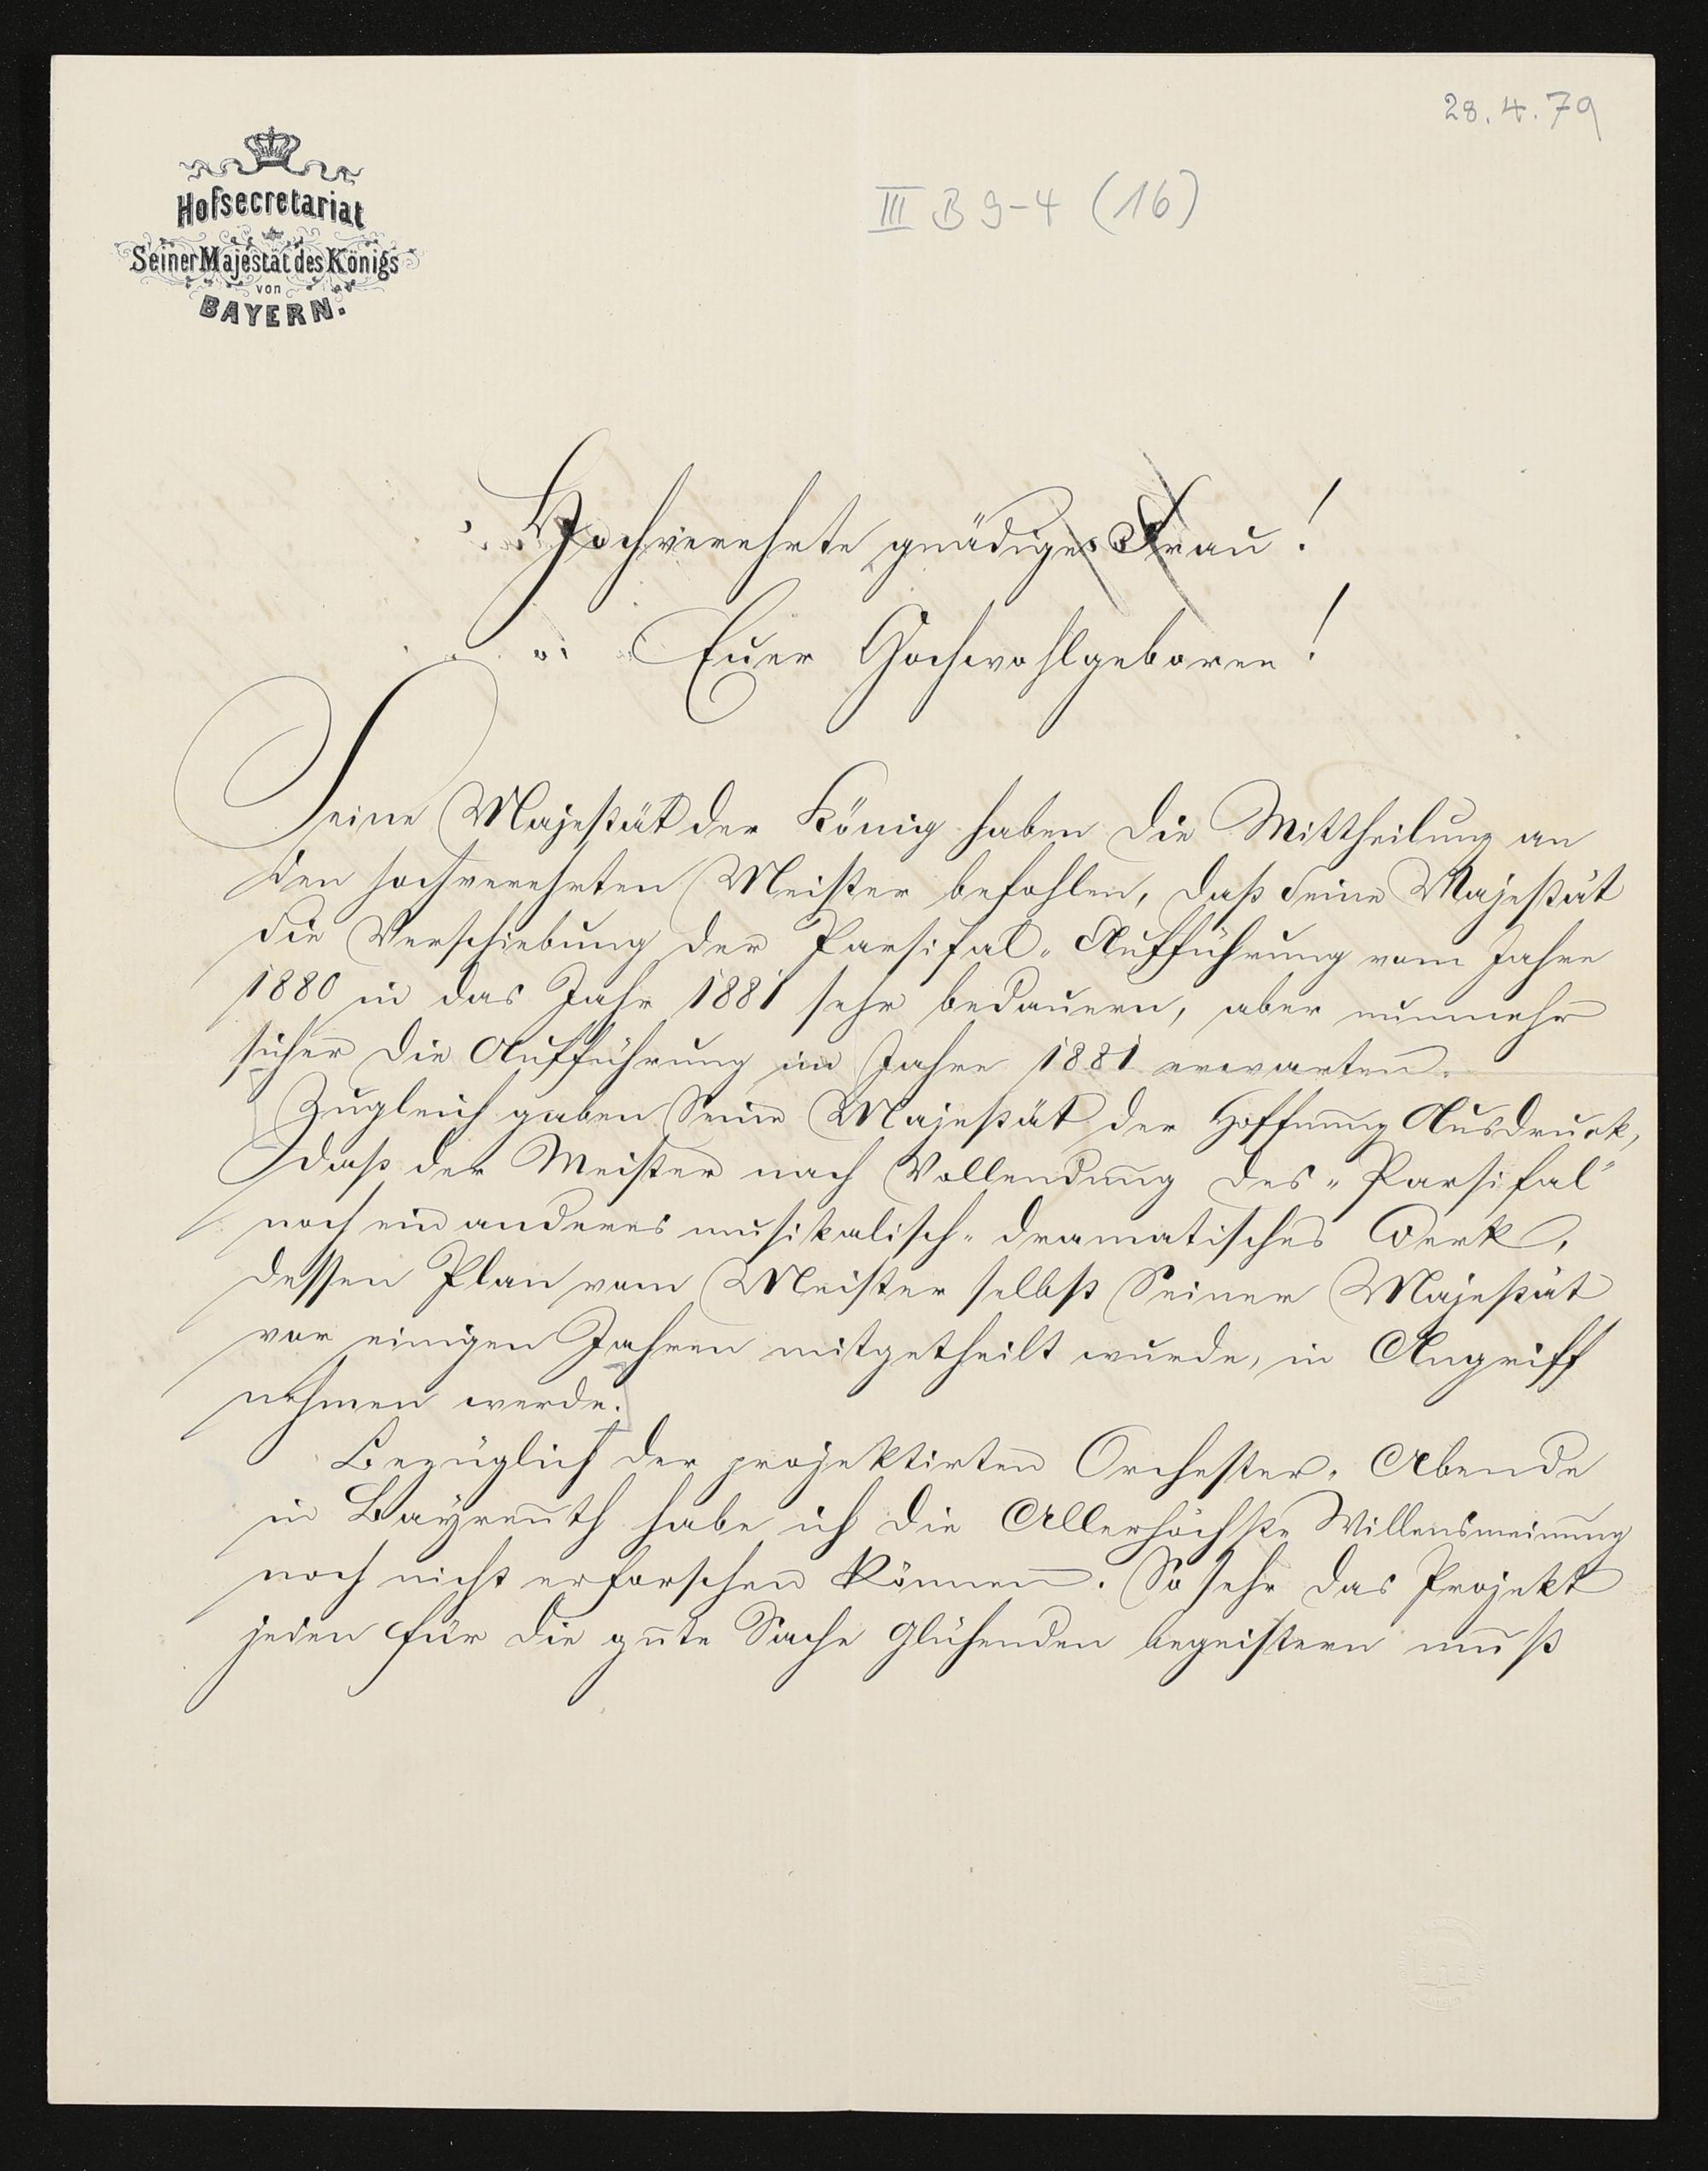 28.4.79
III B 9-4 (16)
Hofsecretariat
Seiner Majestät des Königs
von
BAYERN.
Hochverehrte gnädige Frau!
Euer Hochwohlgeboren!
Seine Majestät der König haben die Mittheilung an
den hochverehrten Meister befohlen, daß Seine Majestät
die Verschiebung der Parsifal-Aufführung vom Jahre
1880 in das Jahr 1881 sehr bedauern, aber nunmehr
sicher die Aufführung im Jahre 1881 erwarten.
Zugleich gaben Seine Majestät der Hoffnung Ausdruck,
daß der Meister nach Vollendung des „Parsifal"
noch ein anderes musikalisch-dramatisches Werk,
dessen Plan vom Meister selbst Seiner Majestät
vor einigen Jahren mitgetheilt wurde, in Angriff
nehmen werde.
Bezüglich der projektirten Orchester-Abende
in Bayreuth habe ich die Allerhöchste Willensmeinung
noch nicht erforschen können. So sehr das Projekt
jeden für die gute Sache Glühenden begeistern muß